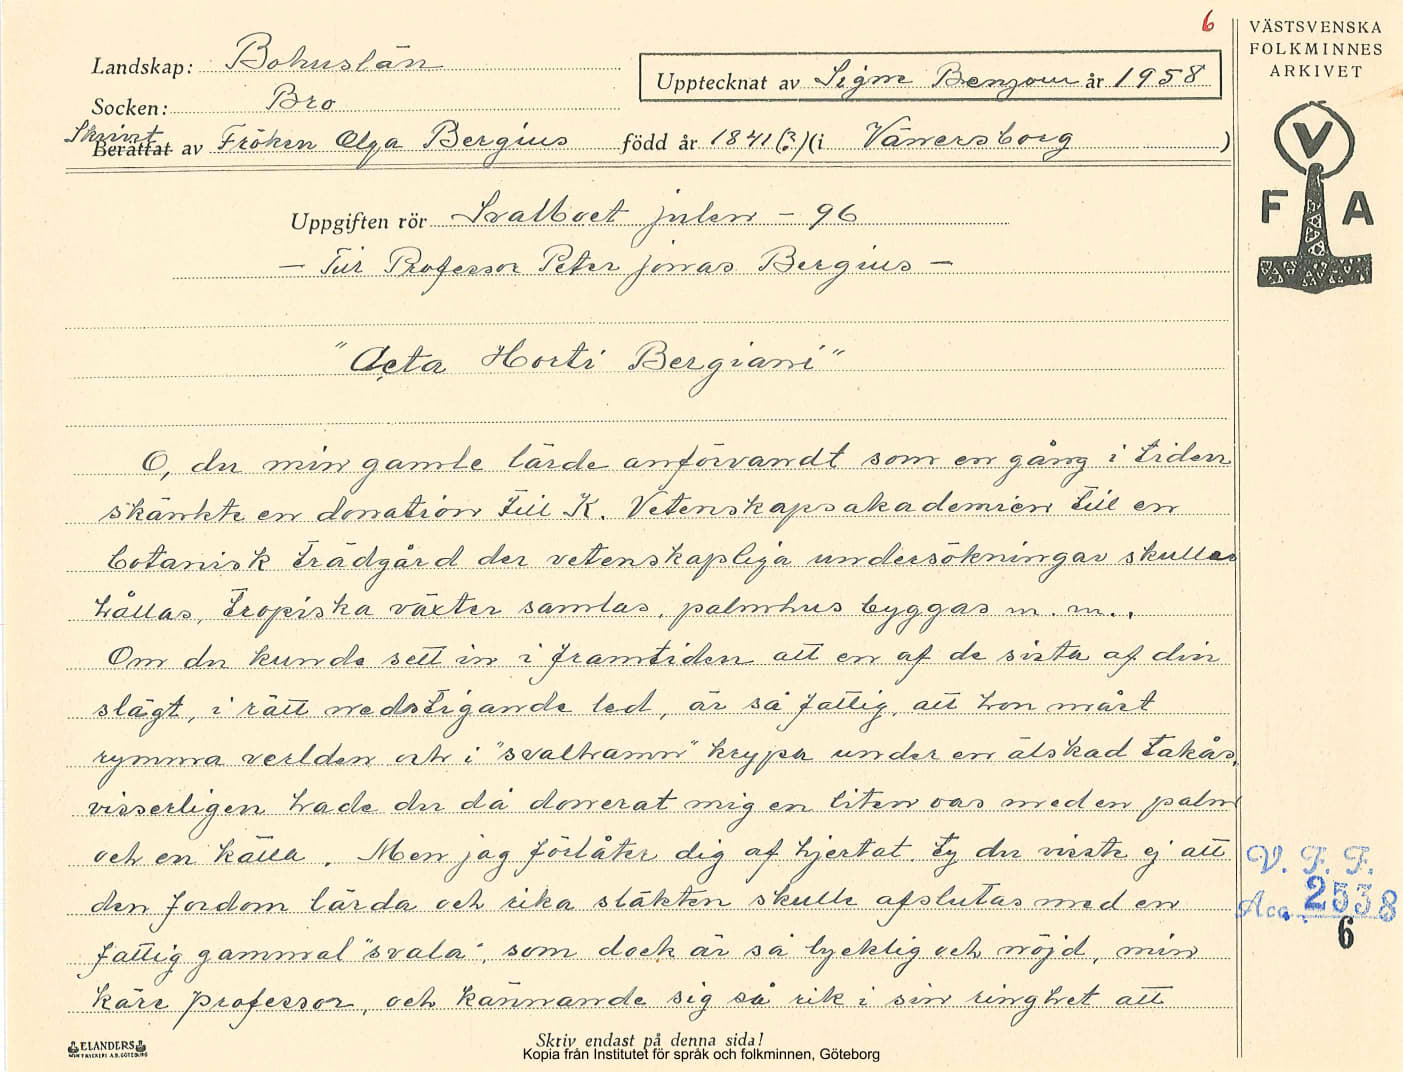 6
VÄSTSVENSKA
FOLKMINNES
ARKIVET
Landskap: Bohuslän
Upptecknat av Signe Benzow år 1958
Socken: Bro
Skrivt
Berättat av Fröken Olga Bergius född år 1841(?) (i Vänersborg )
V
F A
Uppgiften rör Svalboet julen - 96
- Till Professor Peter Jonas Bergius -
"Acta Horti Bergiani"
O, du min gamle lärde anförvandt som en gång i tiden
skänkte en donation till K. Vetenskapsakademien till en
botanisk trädgård der vetenskapliga undersökningar skulle
hållas, tropiska växter samlas, palmhus byggas m. m.,
Om du kunde sett in i framtiden att en af de sista af din
slägt, i rätt nedstigande led, är så fattig, att hon måst
rymma verlden och i "svalhamn" krypa under en älskad takås,
visserligen hade du då donerat mig en liten oas med en palm
och en källa. Men jag förlåter dig af hjertat ty du visste ej att
den fordom lärda och rika släkten skulle afslutas med en
fattig gammal "svala", som dock är så lycklig och nöjd, min
käre professor, och kännande sig så rik i sin ringhet att
V. F. F.
Acc. 2538
6
ELANDERS
Skriv endast på denna sida!
Kopia från Institutet för språk och folkminnen, Göteborg